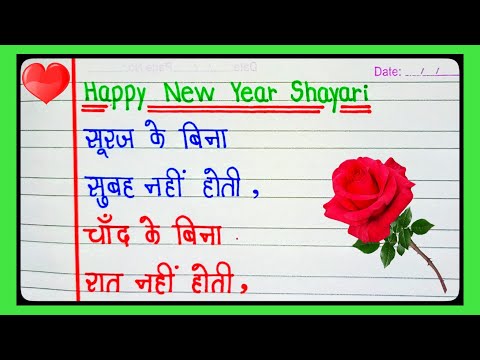 Date: / /
Happy New Year Shayari
सूरज के बिना
सुबह नहीं होती,
चाँद के बिना
रात नहीं होती,